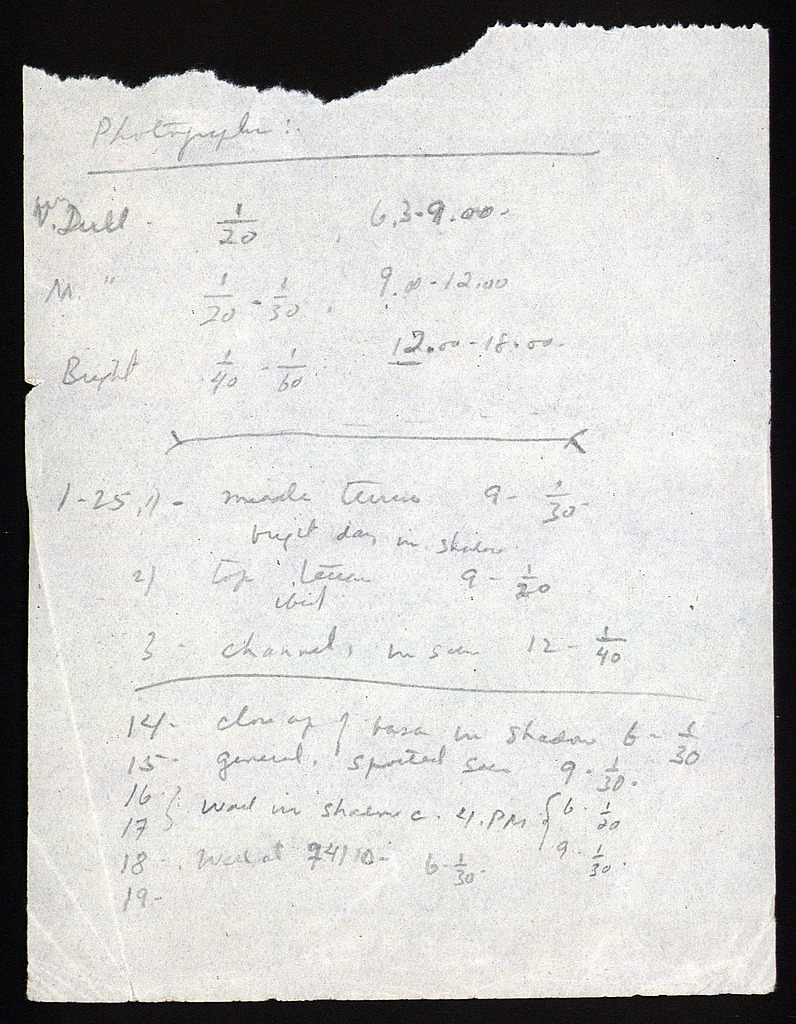 Photographs:
V. Dull - 1/20 , 6.3-9.00-
M. " 1/20 - 1/30 , 9.00-12.00
Bright 1/40 - 1/60 12.00-18.00-
1-25, 1) - middle terrace 9 - 1/30
bright day in shadow
2) top terrace 9 - 1/20
ibid
3 - channel, in sun 12 - 1/40
14- close up of base in shadow 6 - 1/30
15- general, spotted sun 9 - 1/30-
16 } wall in shadow c. 4.PM { 6 - 1/20
17 9 - 1/30
18 - Wall at 6 - 1/30-
19-